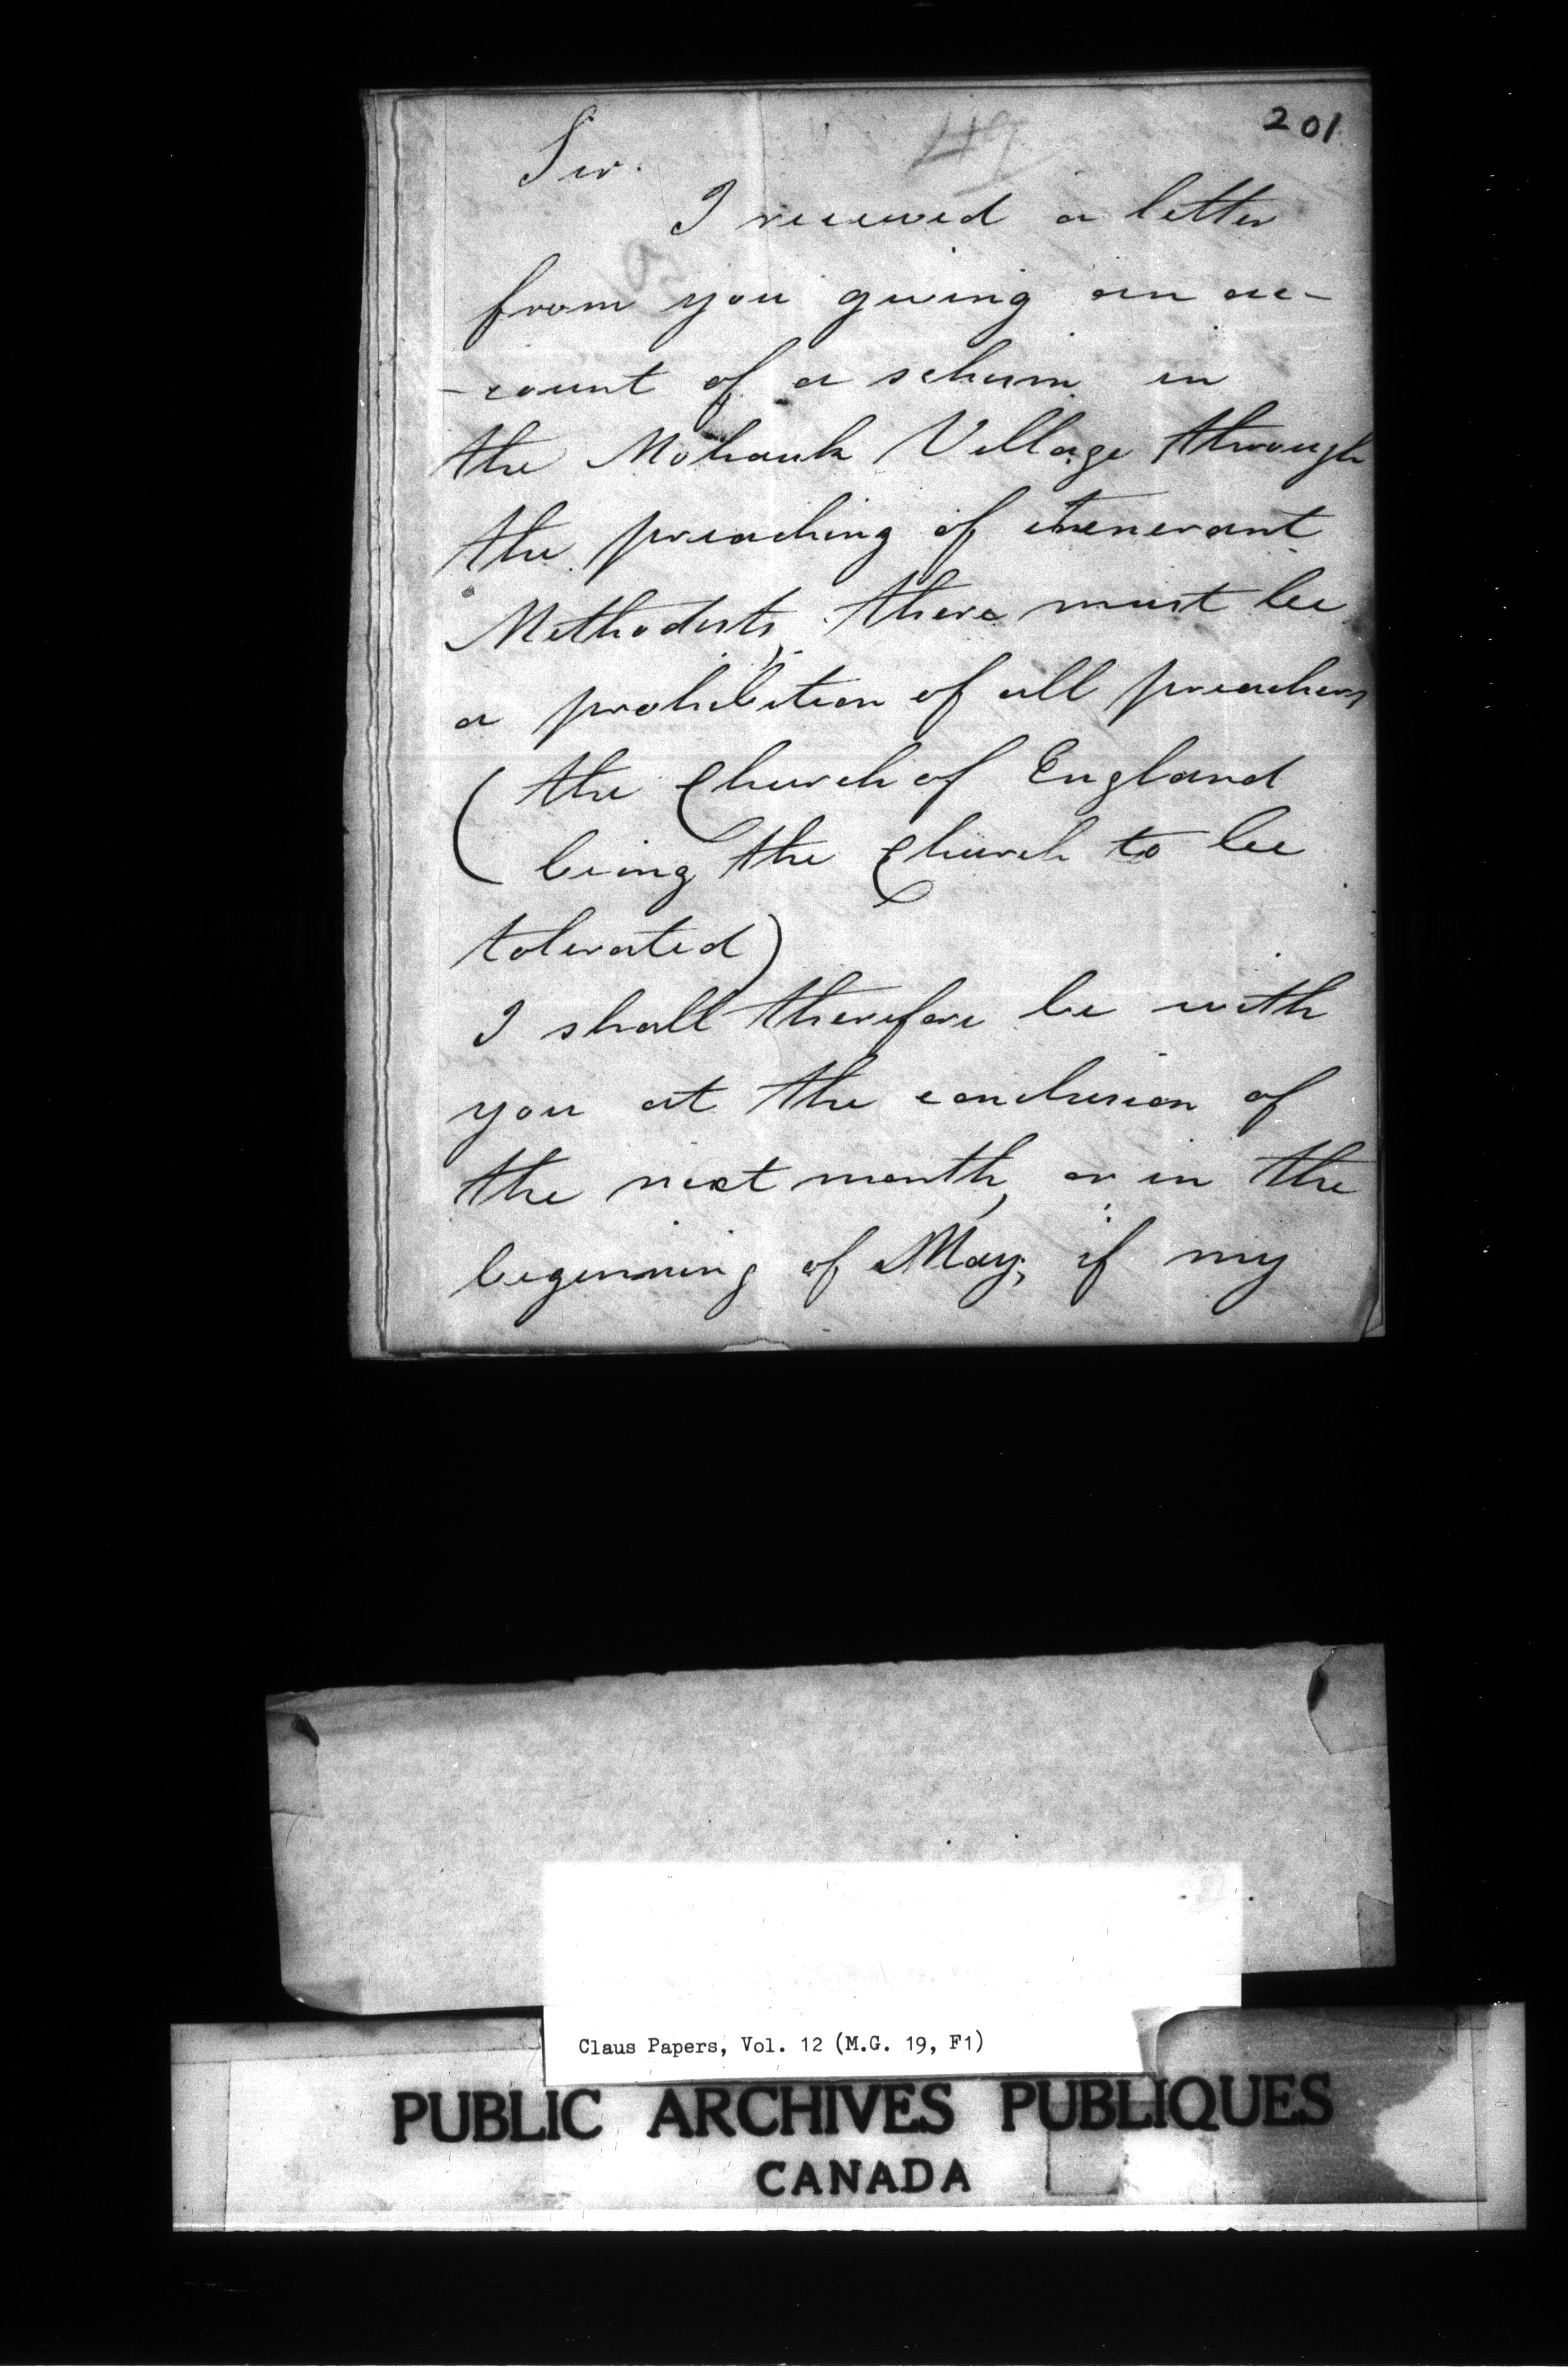 201
49
Sir.
I received a letter
from you giving an ac-
-count of a schism in
the Mohauk Village through
the preaching of itenerant
Methodists, there must be
a prohibition of all preachers
(the Church of England
being the Church to be
tolerated)
I shall therefore be with
you at the conclusion of
the next month, or in the
beginning of May; if my
Claus Papers, Vol. 12 (M.G. 19, F1)
PUBLIC ARCHIVES PUBLIQUES
CANADA